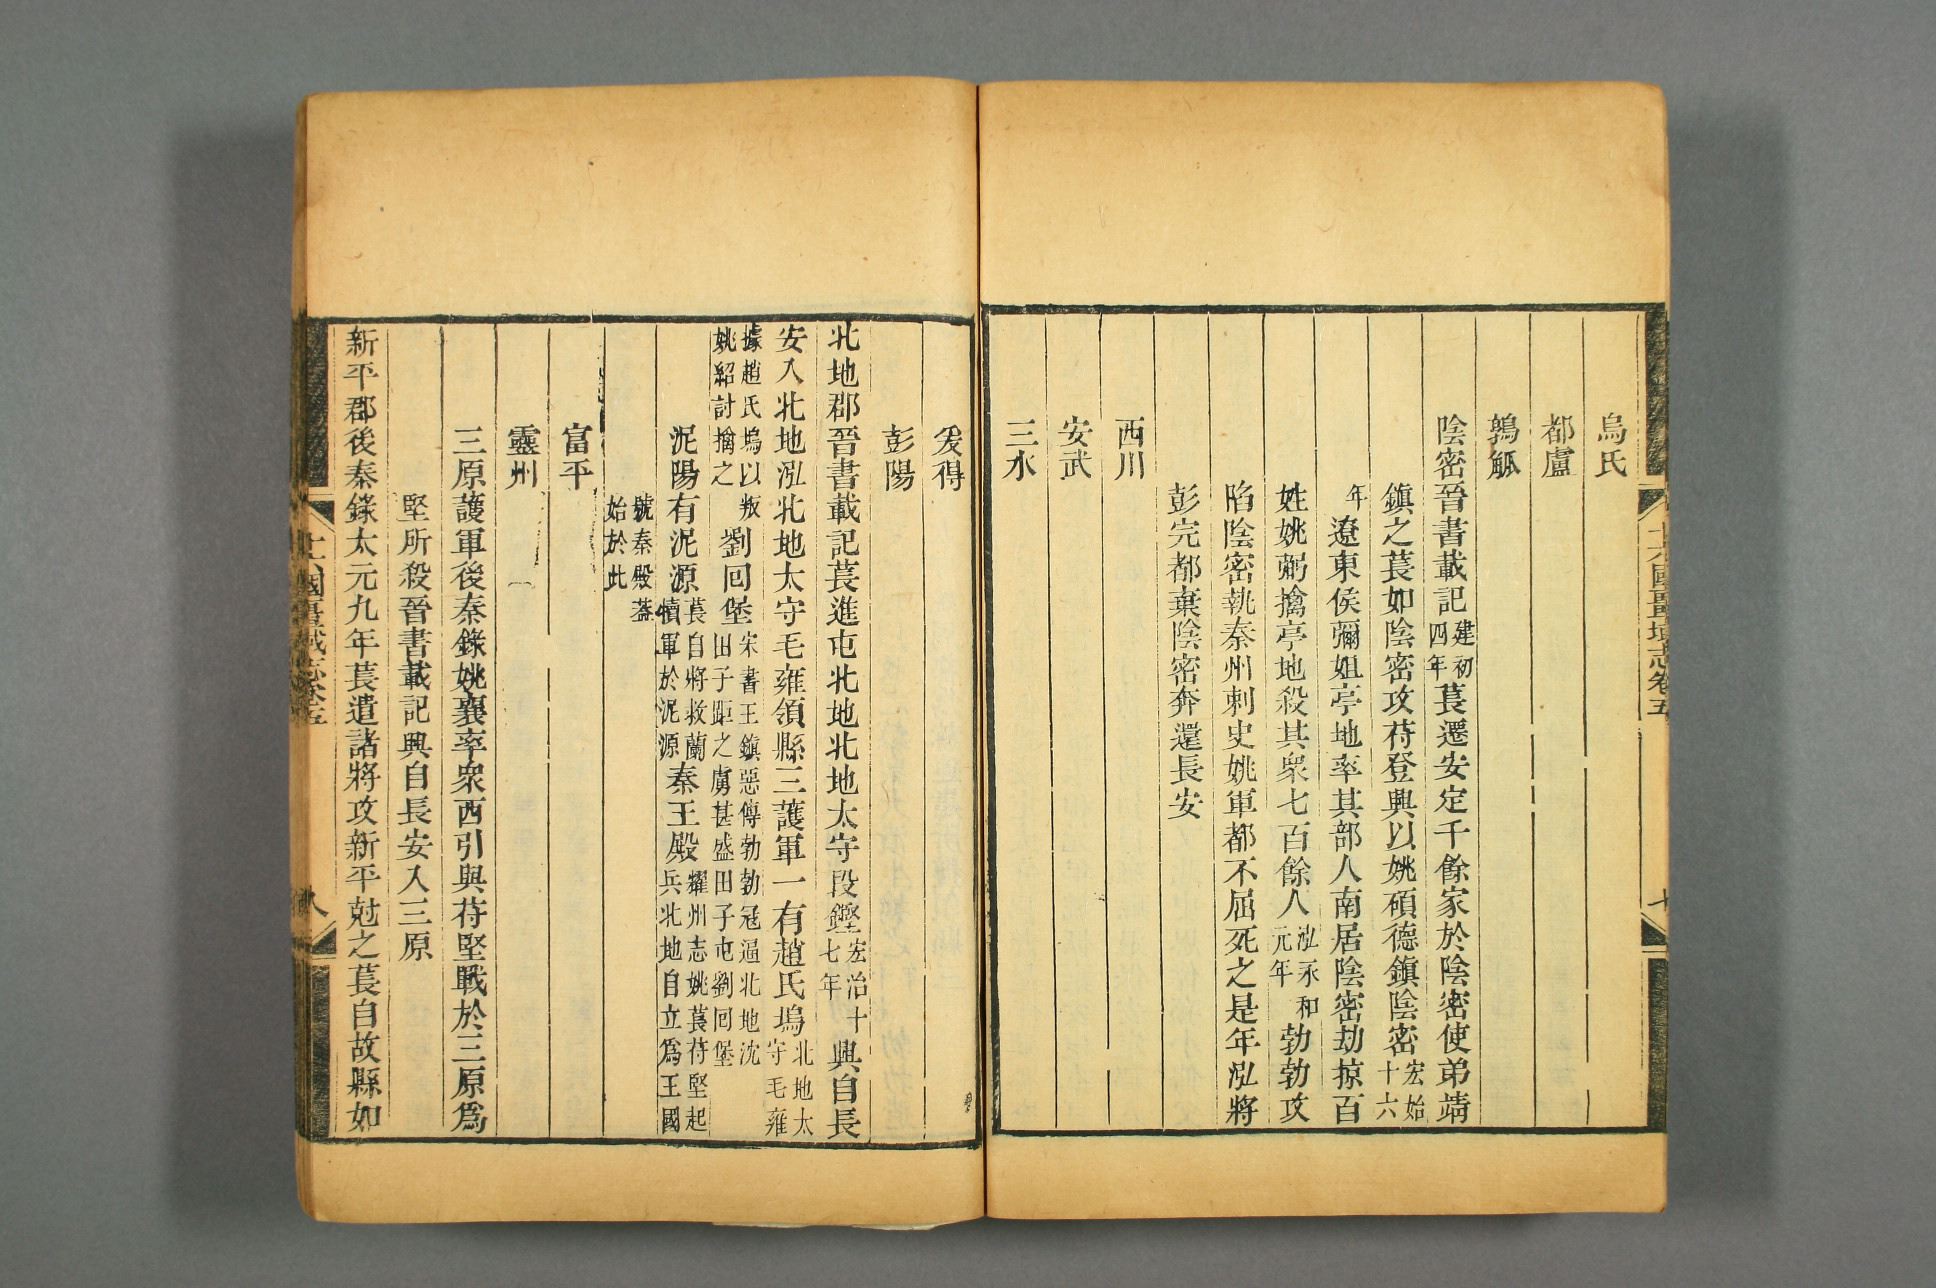 烏氏
都盧
鶉觚
陰密晉書載記建初四年萇還安定千餘家於陰密使弟靖
鎮之萇如陰密攻苻登興以姚碩德鎮陰密宏始十六
年遼東侯彌姐亭地率其部人南居陰密劫掠百
姓姚弼擒亭地殺其衆七百餘人泓永和元年勃勃攻
陷陰密執秦州刺史姚軍都不屈死之是年泓將
彭完都棄陰密奔還長安
西川
安武
三水
爰得
彭陽
北地郡晉書載記萇進屯北地北地太守段鏗宏治十七年興自長
安入北地泓北地太守毛雍領縣三護軍一有趙氏塢北地太守毛雍
據趙氏塢以叛姚紹討擒之劉回堡宋書王鎮惡傳勃勃冠逼北地沈田子距之虜甚盛田子屯劉回堡
泥陽有泥源萇自將救蘭犢軍於泥源秦王殿耀州志姚萇苻堅起兵北地自立爲王國
號秦殿葢始於此
富平
靈州
三原護軍後秦錄姚襄率衆西引與苻堅戰於三原爲
堅所殺晉書載記興自長安入三原
新平郡後秦錄太元九年萇遣諸將攻新平尅之萇自故縣如
十六國疆域志卷五
七
十六國疆域志卷五
八